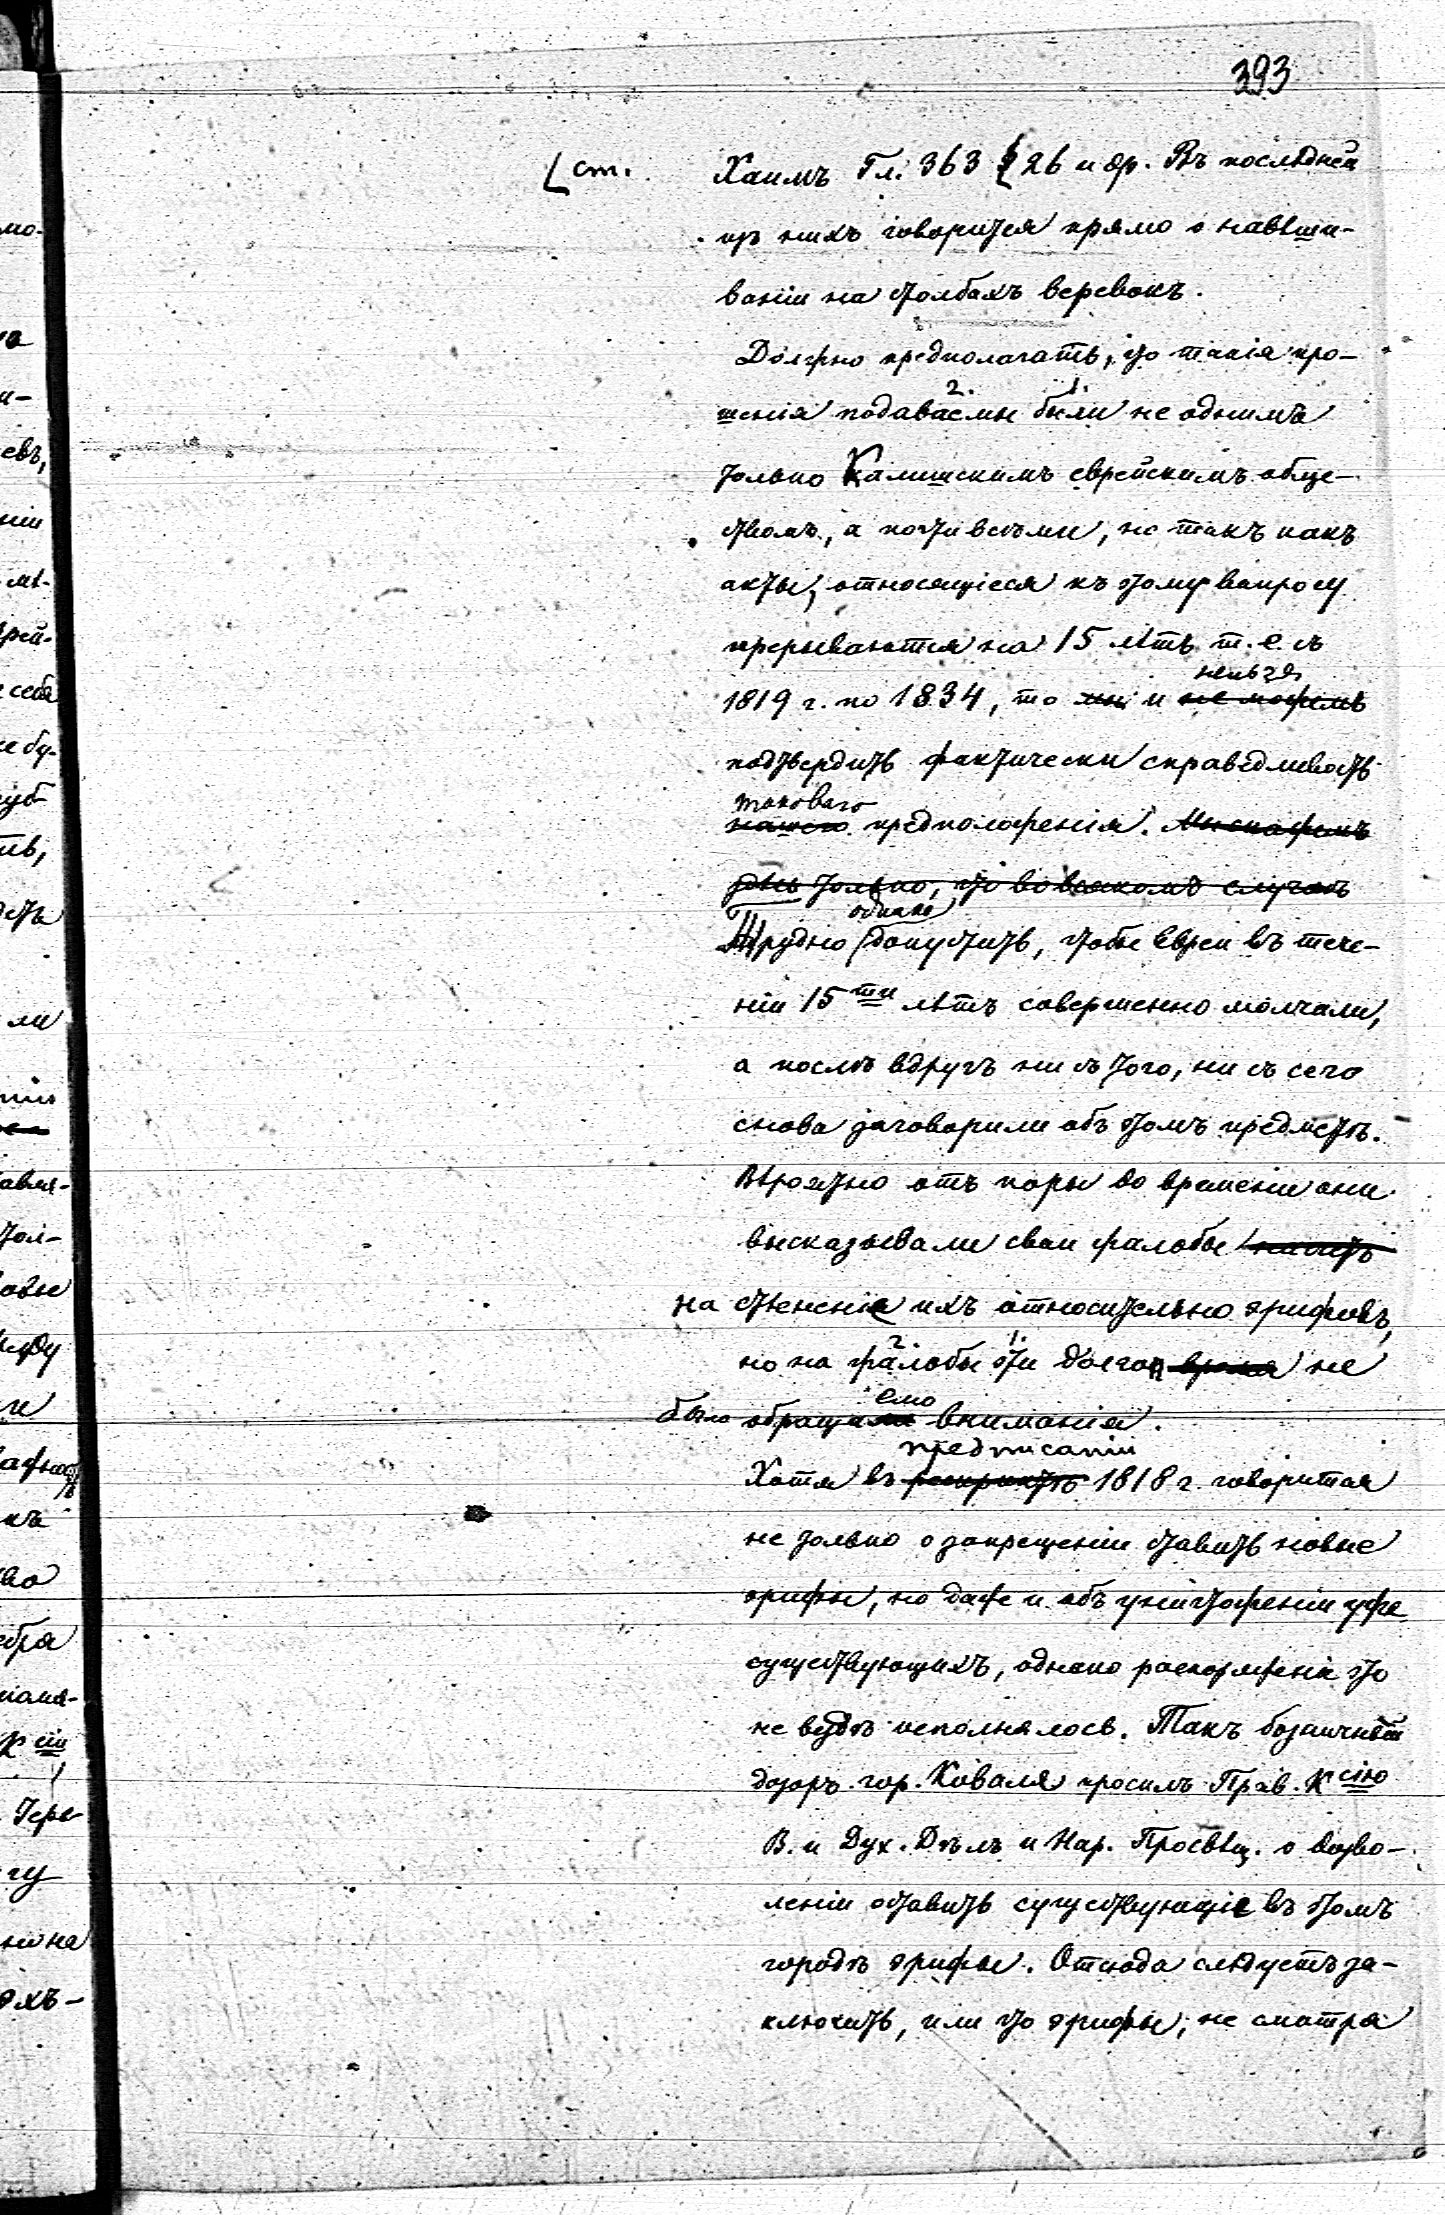 393
[ст.
Хаимъ Гл. 363 [26 и др. Въ послѣдней
изъ нихъ говорится прямо о навѣши-
ваніи на столбахъ веревокъ.
Должно предполагать, что такія про-
2. 1.
шенія подаваемы были не однимъ
только Калишскимъ еврейскимъ обще-
ствомъ, а почти всѣми, но такъ какъ
акты, относящіеся къ этому вопросу
прерываются на 15 лѣтъ т.е. съ
нельзя
1819 г. по 1834, то мы и не можемъ
подтвердить фактически справедливость
таковаго
нашего предположенія. Мы скажемъ
здѣсь только, что во всякомъ случаѣ
однако
Трудно допустить, чтобы евреи въ тече-
ніи 15ти лѣтъ совершенно молчали,
а послѣ вдругъ ни съ того, ни съ сего
снова заговорили объ этомъ предметѣ.
Вѣроятно отъ поры до времени они
высказывали свои жалобы
на стѣсненіе ихъ относительно эрифовъ,
2. 1.
но на жалобы эти долго время не
емо
было обращали вниманія.
предписаніи
Хотя въ рескриптѣ 1818 г. говорится
не только о запрещеніи ставить новые
эрифы, но даже и объ уничтоженіи уже
существующихъ, однако распоряженіе это
не вездѣ исполнялось. Такъ божничный
дозоръ гор. Коваля просилъ Прав. Ксію
В. и Дух. Дѣлъ и Нар. Просвѣщ. о дозво-
леніи оставить существующіе въ этомъ
городѣ эрифы. Отсюда слѣдуетъ за-
ключить, или что эрифы, не смотря